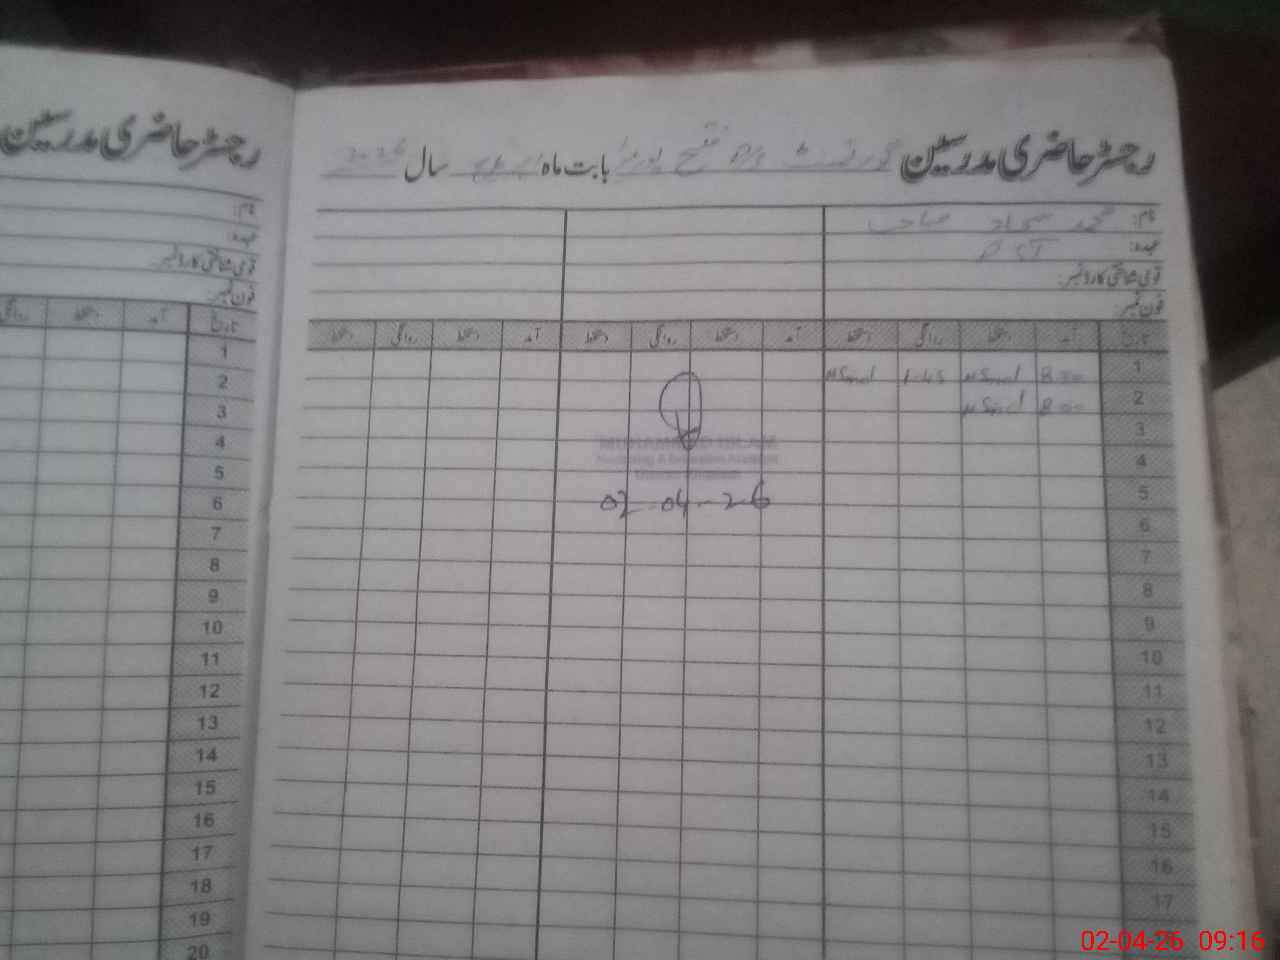 رجسٹر حاضری مدرسین گورنمنٹ P/S فتح پور بابت ماہ اپریل سال 2026
نام: محمد سجاد صاحب
عہدہ: PST
قومی شناختی کارڈ نمبر:
فون نمبر:
تاریخ آمد دستخط روانگی دستخط آمد دستخط روانگی دستخط آمد دستخط روانگی دستخط
1 8:00 1:45
2 8:00
3
4
5
6
7
8
9
10
11
12
13
14
15
16
17
MUHAMMAD ISLAM
Monitoring & Evaluation Assistant
02-04-26
رجسٹر حاضری مدرسین
نام:
عہدہ:
قومی شناختی کارڈ نمبر:
فون نمبر:
تاریخ آمد دستخط روانگی
1
2
3
4
5
6
7
8
9
10
11
12
13
14
15
16
17
18
19
20
02-04-26 09:16